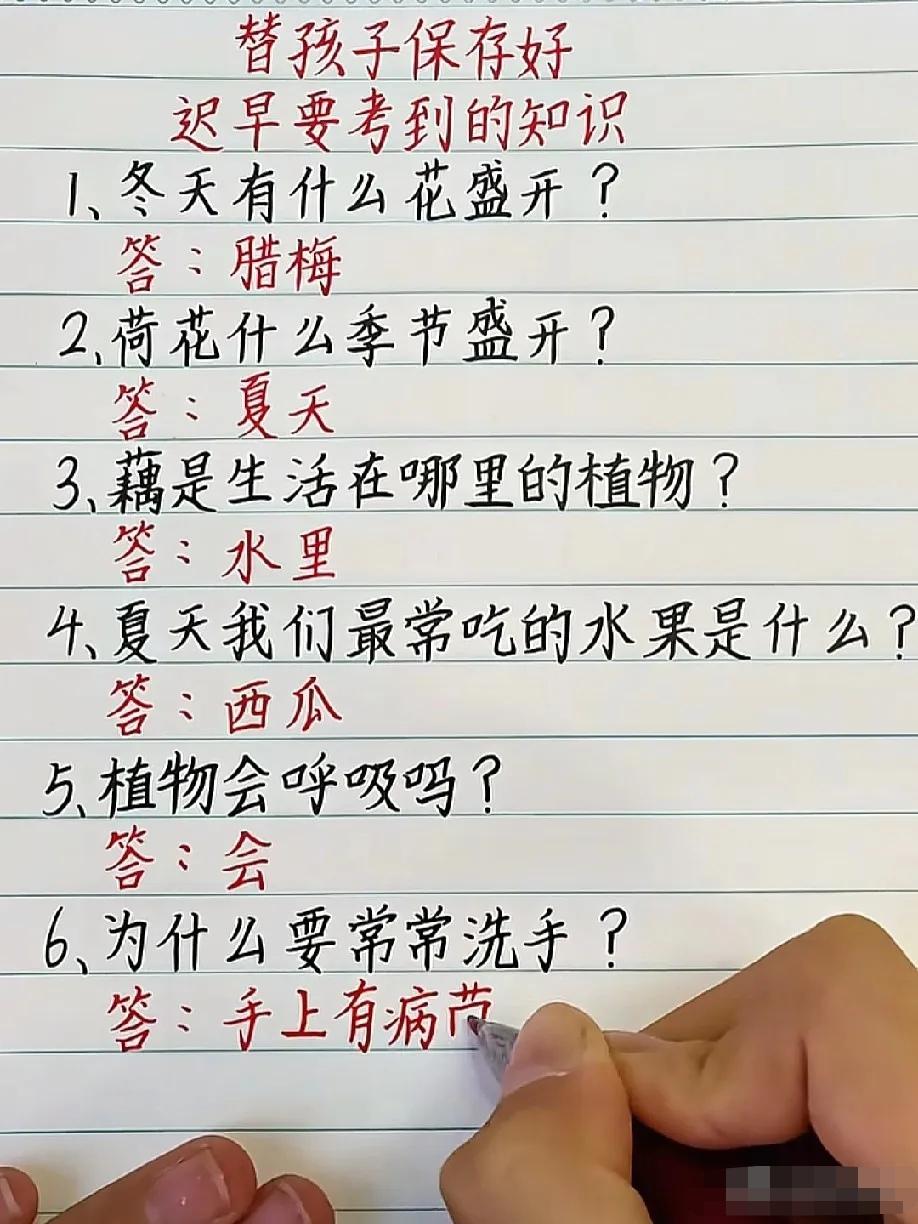 替孩子保存好
迟早要考到的知识
1、冬天有什么花盛开?
答:腊梅
2、荷花什么季节盛开?
答:夏天
3、藕是生活在哪里的植物?
答:水里
4、夏天我们最常吃的水果是什么?
答:西瓜
5、植物会呼吸吗?
答:会
6、为什么要常常洗手?
答:手上有病